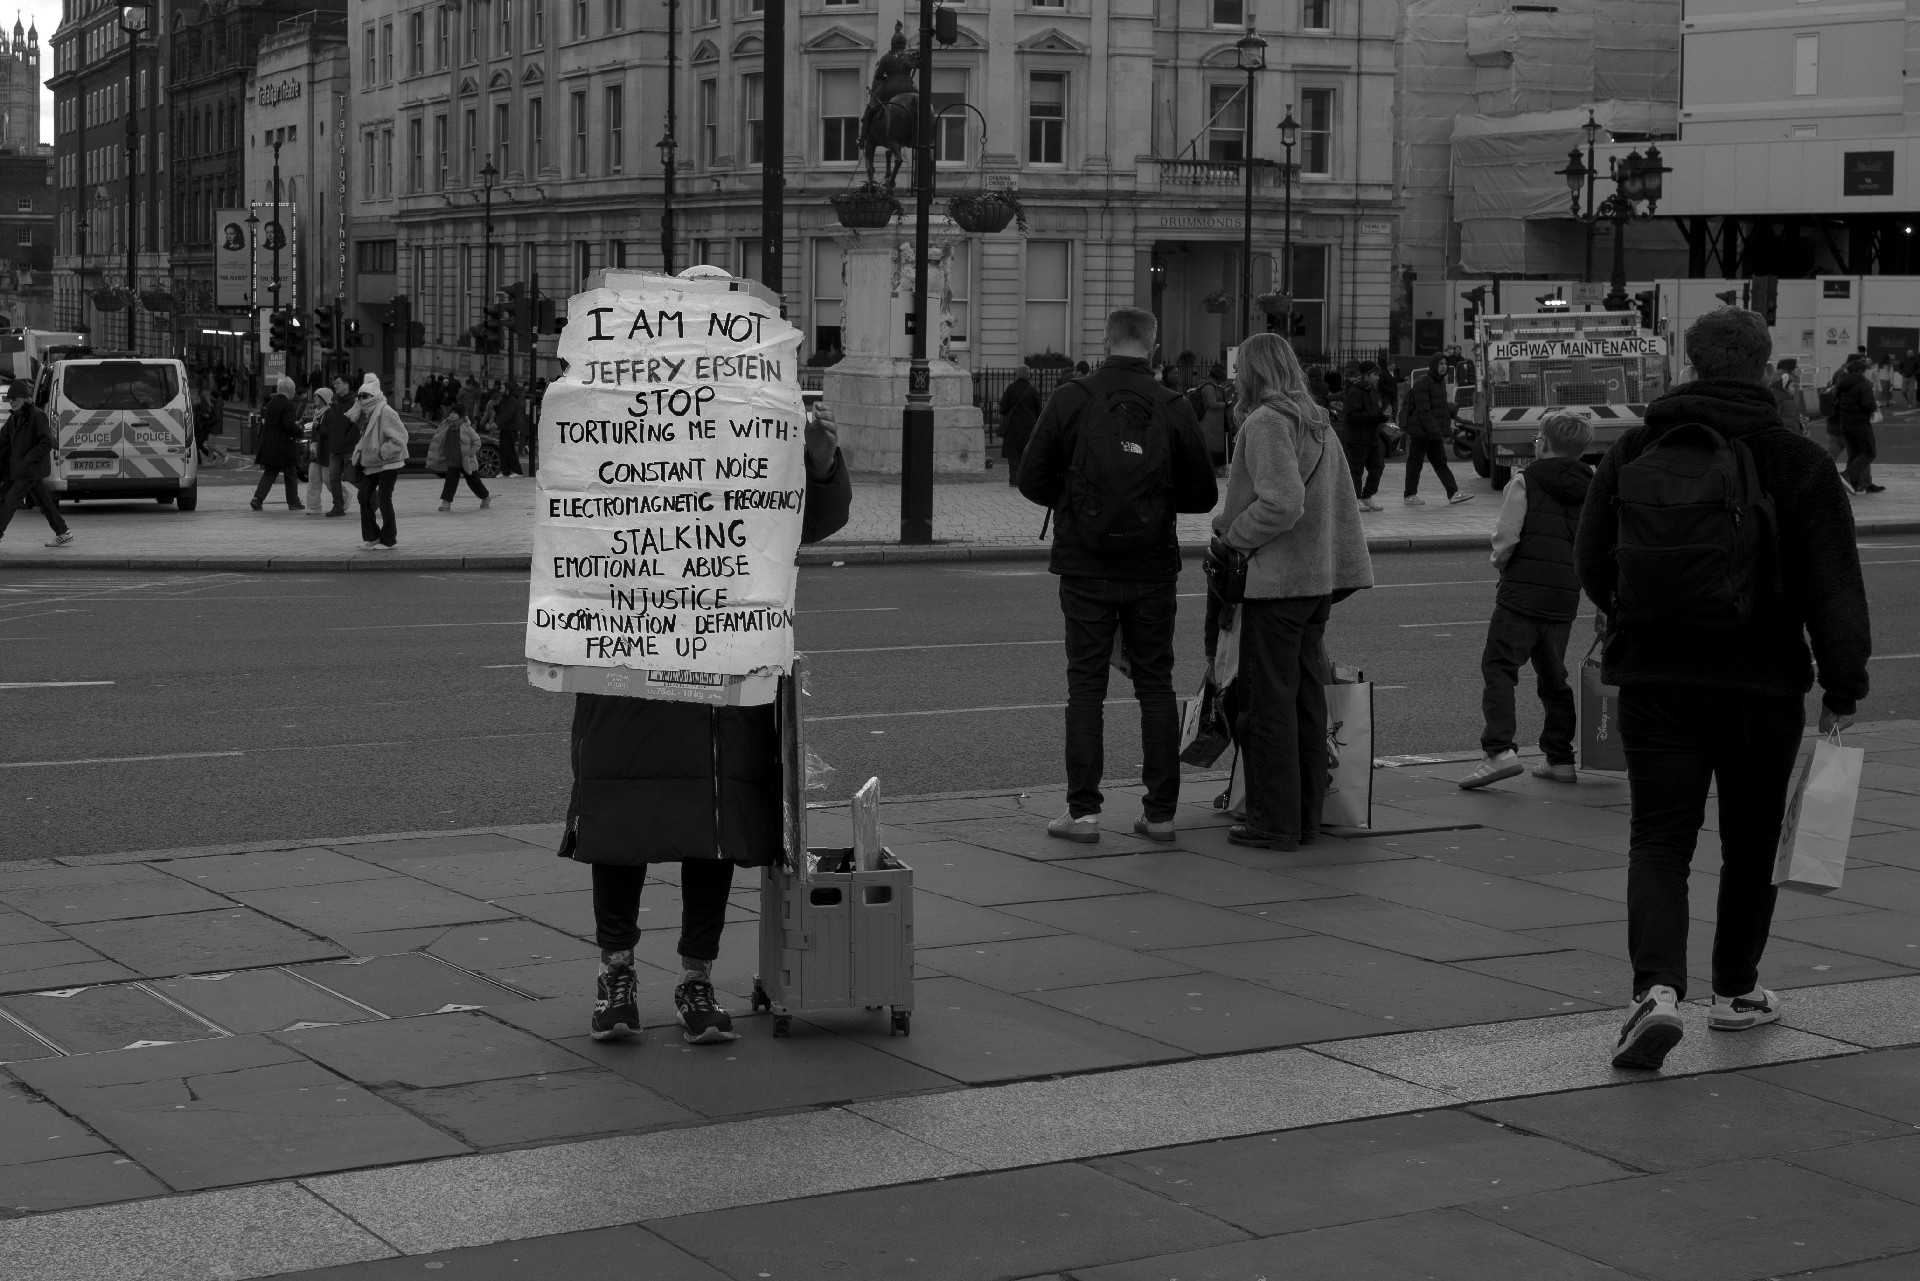 I AM NOT
JEFFRY EPSTEIN
STOP
TORTURING ME WITH:
CONSTANT NOISE
ELECTROMAGNETIC FREQUENCY
STALKING
EMOTIONAL ABUSE
INJUSTICE
DISCRIMINATION DEFAMATION
FRAME UP
75cL - 10 kg
Trafalgar Theatre
Trafalgar Theatre
DRUMMONDS
HIGHWAY MAINTENANCE
POLICE POLICE
BX70 CXS
Disney